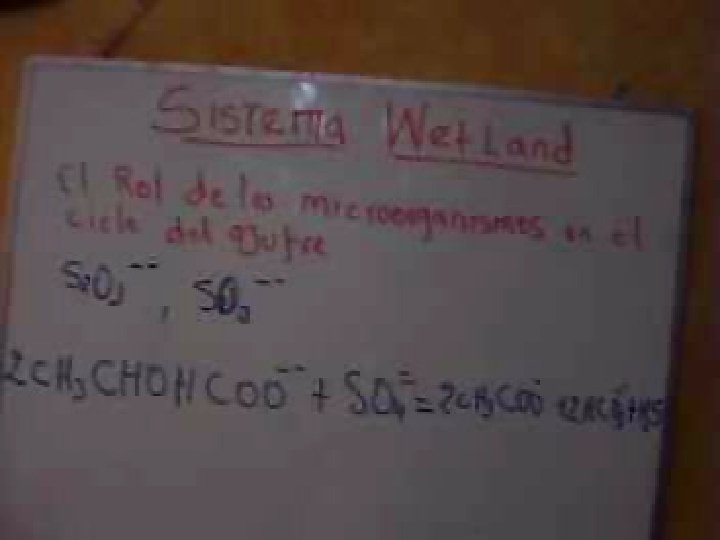 Sistema Wetland
El Rol de los microorganismos en el
ciclo del azufre
S2O3--, SO3--
2CH3CHOHCOO-- + SO4= = 2CH3COO- +2HCO3-+H2S